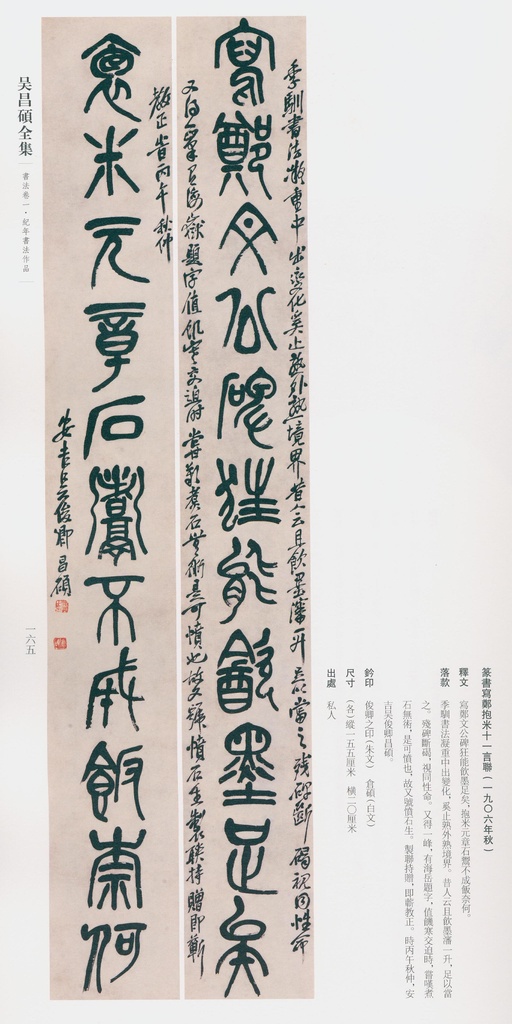 寫鄭文公碑狂能飲墨足矣
季馴書法凝重中出變化奚止熟外熟境界昔人云且飲墨瀋一升足以當之殘碑斷碣視同性命
又得一峯有海岳題字值飢寒交迫時嘗嘆煮石無術是可憤也故又號憤石生製聯持贈即蘄
教正時丙午秋仲
抱米元章石𩰬不成飯奈何
安吉吳俊卿昌碩
篆書寫鄭抱米十一言聯(一九〇六年秋)
釋文 寫鄭文公碑狂能飲墨足矣,抱米元章石𩰬不成飯奈何。
落款 季馴書法凝重中出變化,奚止熟外熟境界。昔人云且飲墨瀋一升,足以當
之。殘碑斷碣,視同性命。又得一峰,有海岳題字,值饑寒交迫時,嘗嘆煮
石無術,是可憤也,故又號憤石生。製聯持贈,即蘄教正。時丙午秋仲,安
吉吴俊卿昌碩
鈐印 俊卿之印(朱文) 倉碩(白文)
尺寸 (各)縱一五五厘米 橫二〇厘米
出處 私人
吴昌碩全集
書法卷一·紀年書法作品
一六五